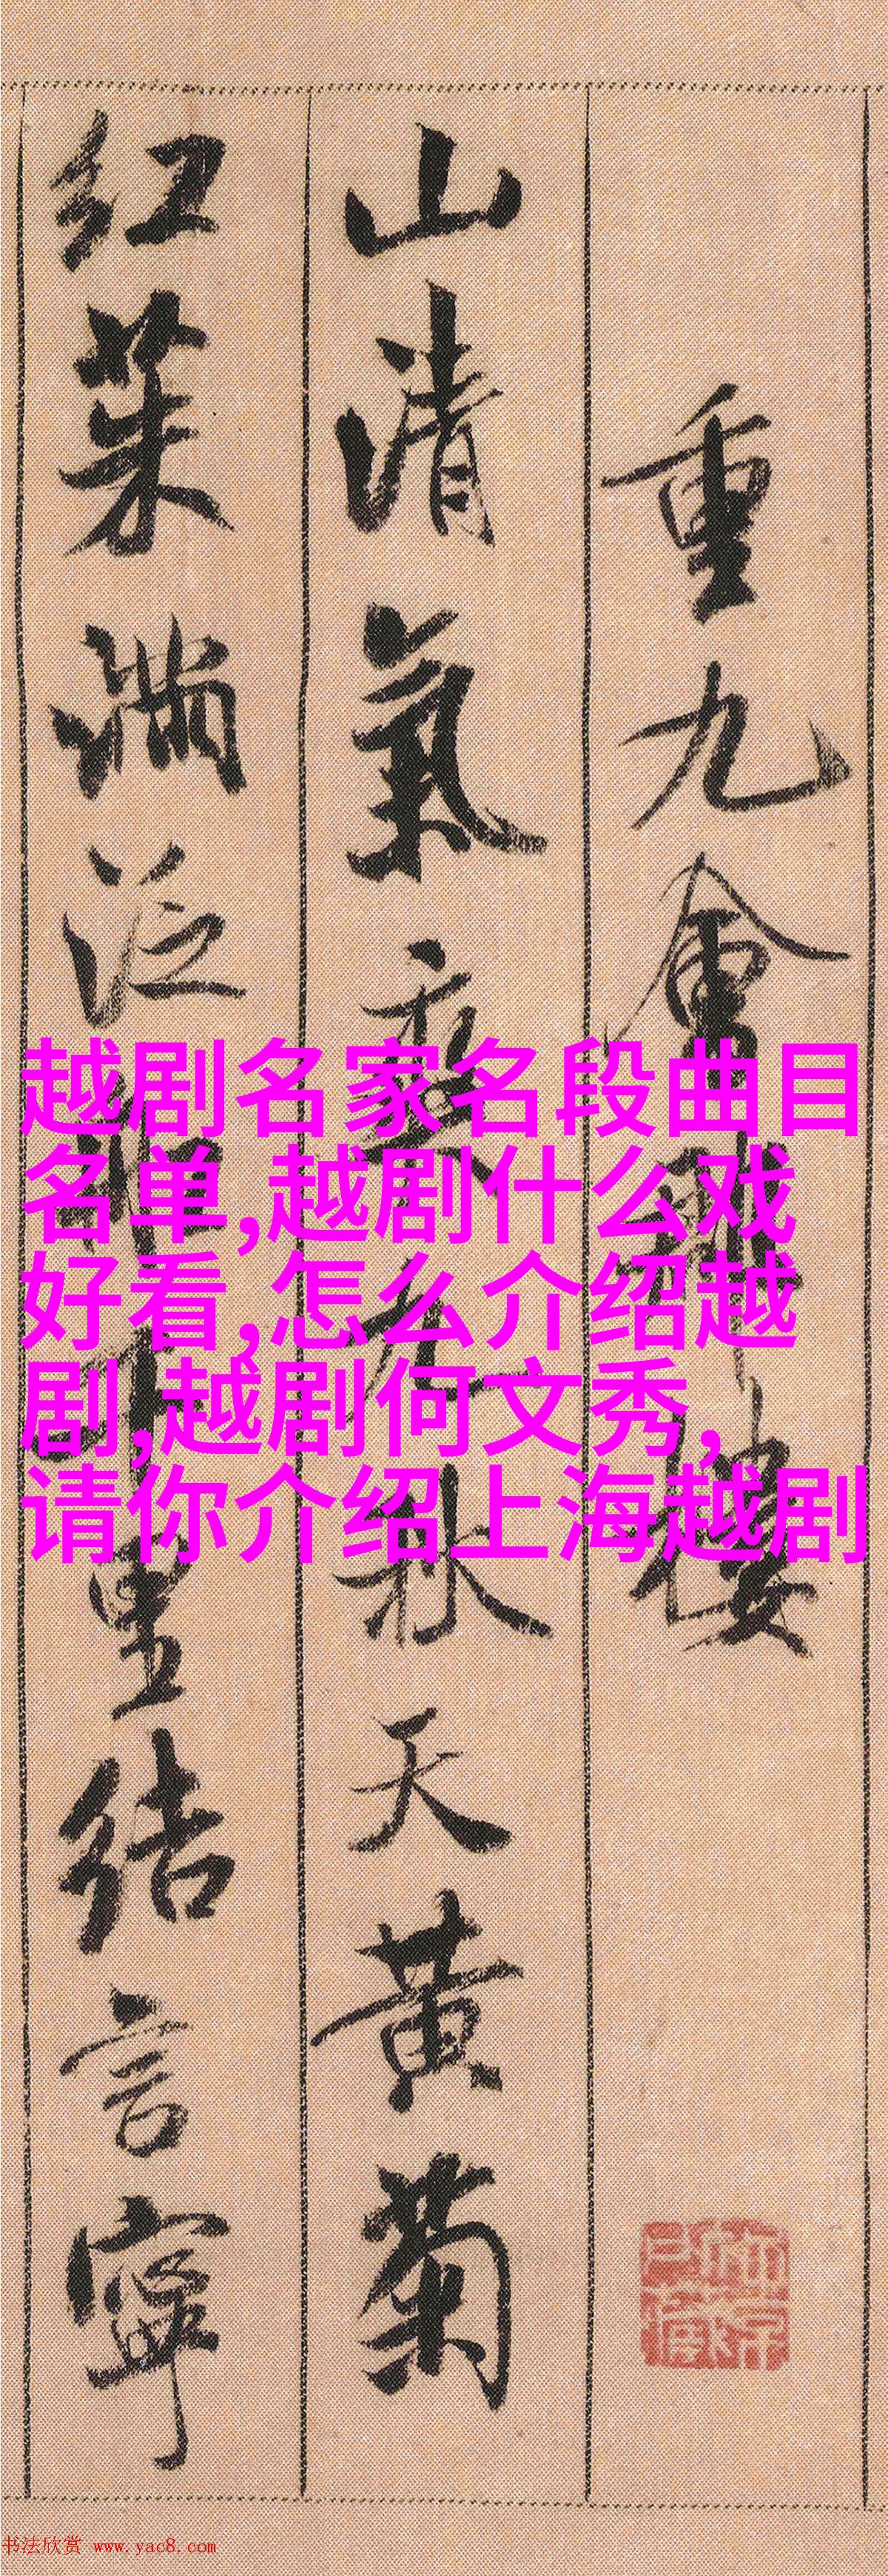 重九會郡樓
山清氣爽九秋天黃菊
紅茱滿泛船千里結言寧
越剧名家名段曲目
名单,越剧什么戏
好看,怎么介绍越
剧,越剧何文秀,
请你介绍上海越剧
书法欣赏 www.yac8.com